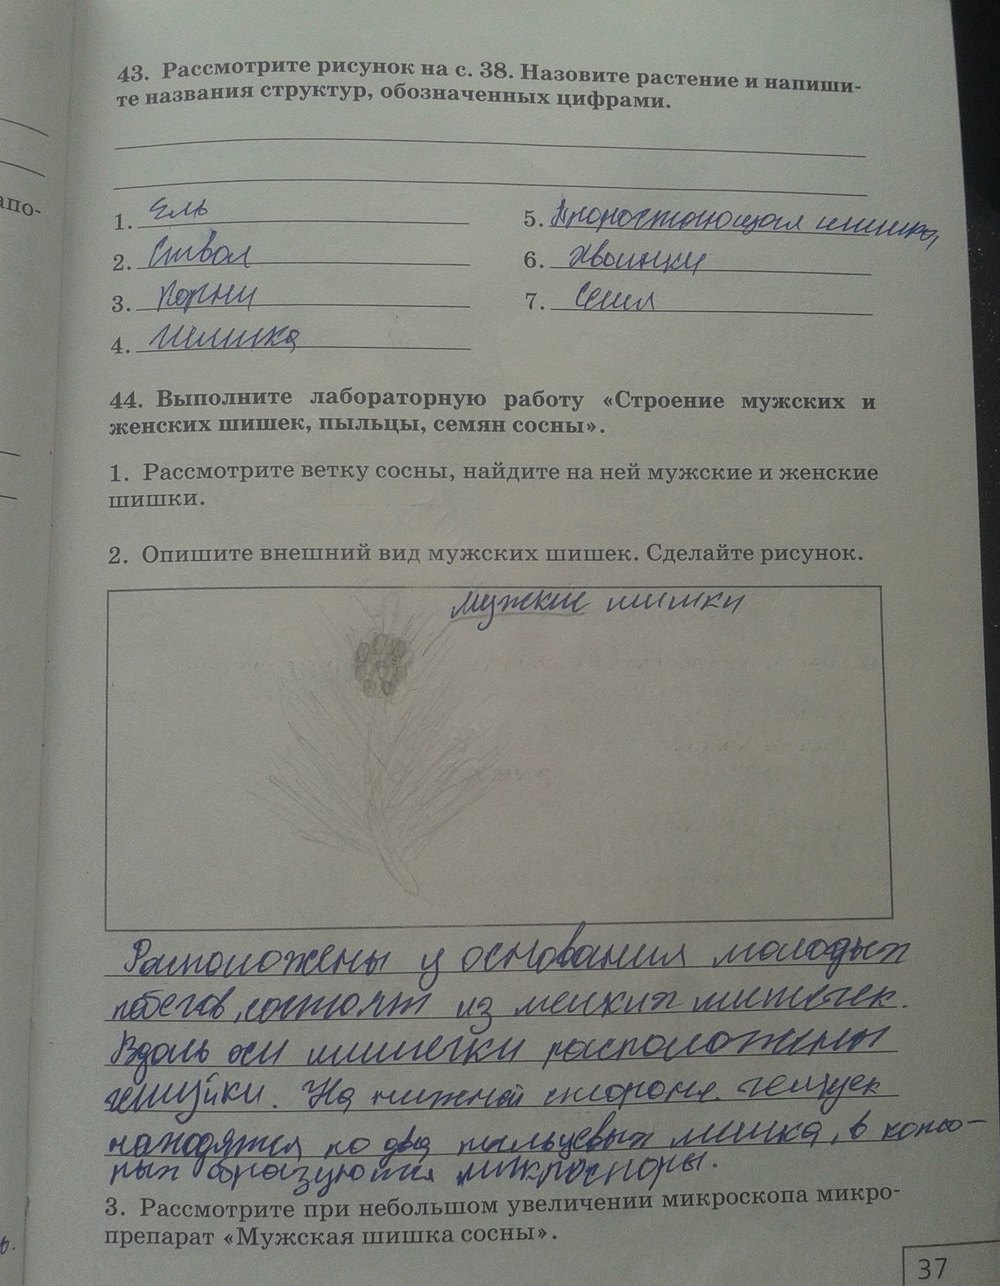 апо-
43. Рассмотрите рисунок на с. 38. Назовите растение и напиши-
те названия структур, обозначенных цифрами.
1. Ель
2. Ствол
3. Корни
4. Шишка
5. Проростающая шишка,
6. Хвоинки
7. Семя
44. Выполните лабораторную работу «Строение мужских и
женских шишек, пыльцы, семян сосны».
1. Рассмотрите ветку сосны, найдите на ней мужские и женские
шишки.
2. Опишите внешний вид мужских шишек. Сделайте рисунок.
мужские шишки
Расположены у основания молодых
побегов, состоят из мелких шишечек.
Вдоль оси шишечки расположены
чешуйки. На нижней стороне чешуек
находятся по два пыльцевых мешка, в кото-
рых образуются микроспоры.
3. Рассмотрите при небольшом увеличении микроскопа микро-
препарат «Мужская шишка сосны».
37